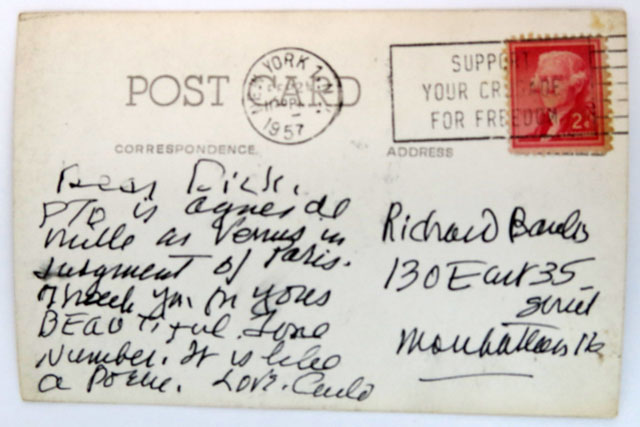 POST CARD
NEW YORK, N.Y.
1957
SUPPORT
YOUR CRUSADE
FOR FREEDOM
2¢
CORRESPONDENCE
ADDRESS
Dear Dick.
PTO is Agnes de
Mille as Venus in
Judgment of Paris.
Thank you for yours
BEAUTIFUL. Some
Number. It is like
a Poem. Love. Carlo
Richard
130 East 35
Street
Manhattan 16